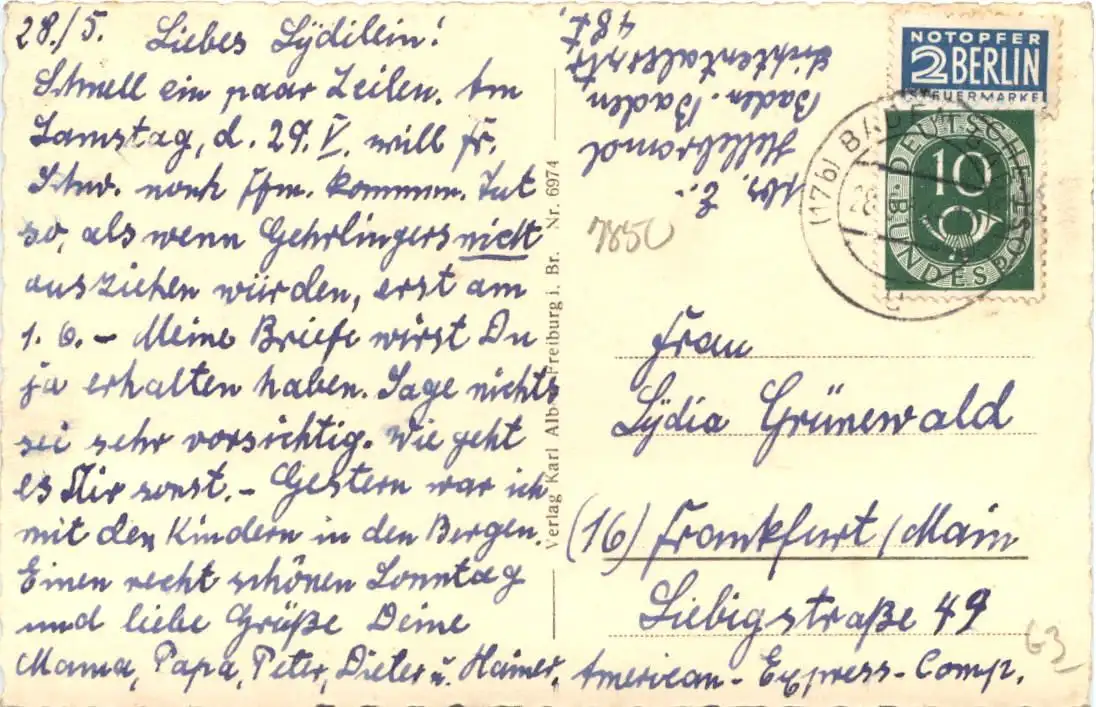 28./5. Liebes Lydilein!
Schnell ein paar Zeilen. Am
Samstag, d. 29. V. will Fr.
Schw. nach Ffm. kommen. Tut
so, als wenn Gehrlingers nicht
ausziehen würden, erst am
1. 6. - Meine Briefe wirst Du
ja erhalten haben. Sage nichts
sei sehr vorsichtig. Wie geht
es Dir sonst. - Gestern war ich
mit den Kindern in den Bergen.
Einen recht schönen Sonntag
und liebe Grüße Deine
Mama, Papa, Peter, Dieter u. Heiner.
Verlag Karl Alber Freiburg i. Br. Nr. 6974
Abs. E.
Hillebrand
Baden-Baden
Lichtentalerstr.
48 I
7850
NOTOPFER
2 BERLIN
STEUERMARKE
DEUTSCHE
10
BUNDESPOST
(17b) BADEN
28
Frau
Lydia Grünewald
(16) Frankfurt/Main
Liebigstraße 49
American-Express-Comp.
63